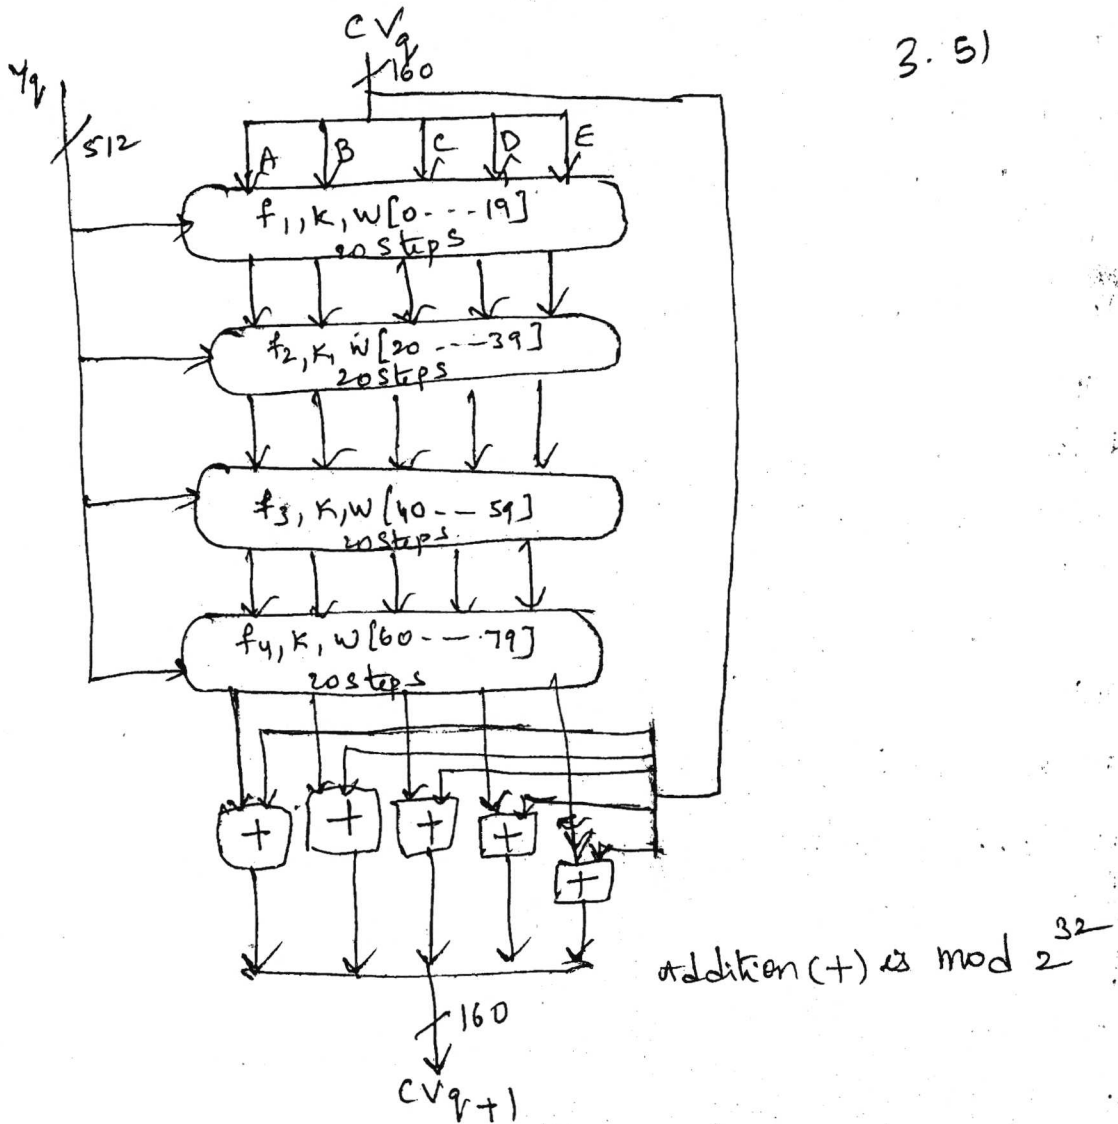 CVq
3.5)
Yq
160
512
A B C D E
f1, K, W[0----19]
20 steps
f2, K, W[20----39]
20 steps
f3, K, W[40---59]
20 steps
f4, K, W[60---79]
20 steps
+ + + + +
Addition (+) is mod 2^32
160
CVq+1